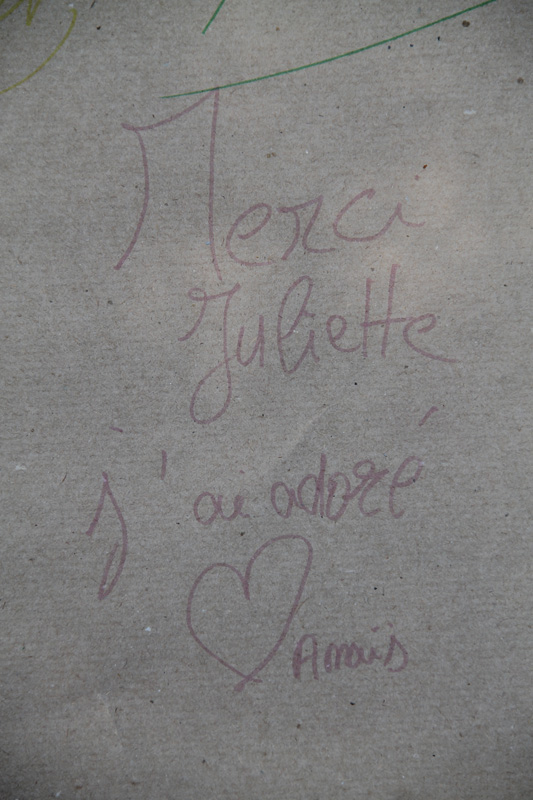 Merci
Juliette
j'ai adoré
Anaïs